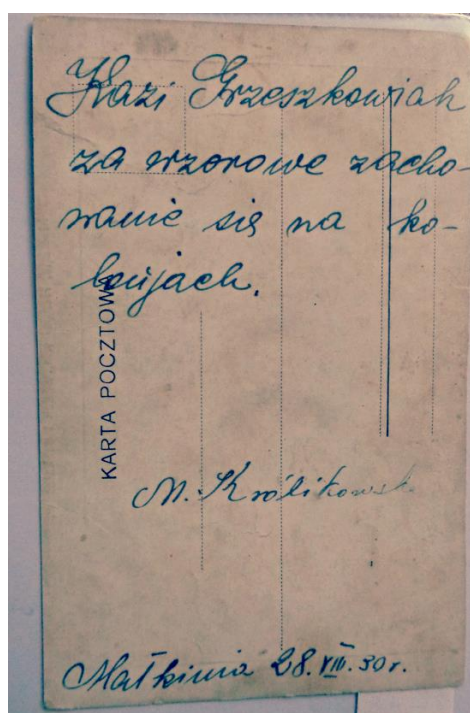 Kazi Grzeszkowiak
za wzorowe zacho-
wanie się na ko-
lonjach.
KARTA POCZTOWA
M. Królikowsk
Małkinia 28.VIII.30r.